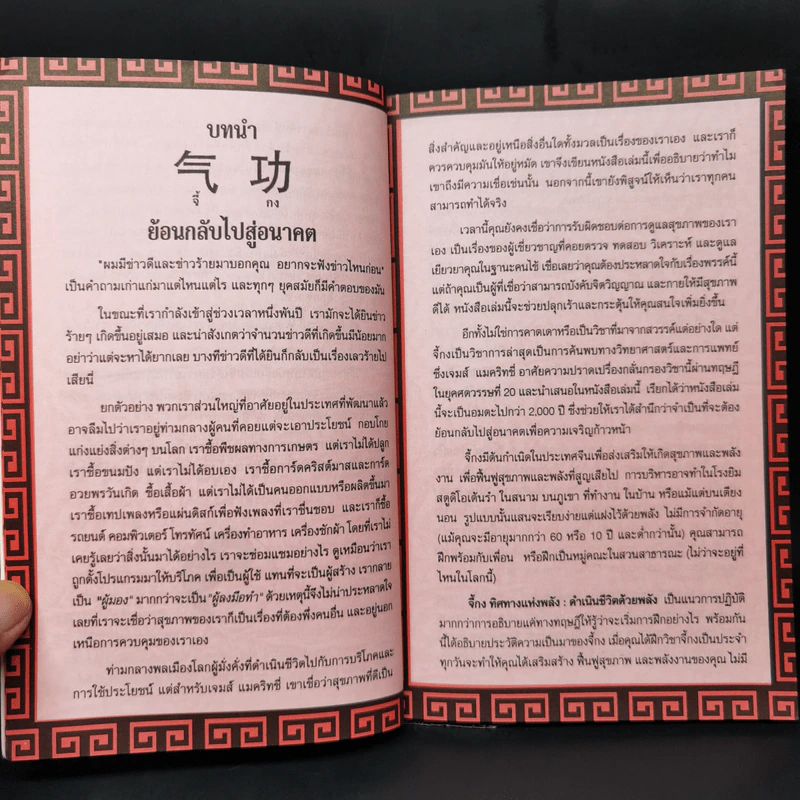 บทนำ
气 功
จี้ กง
ย้อนกลับไปสู่อนาคต
"ผมมีข่าวดีและข่าวร้ายมาบอกคุณ อยากจะฟังข่าวไหนก่อน"
เป็นคำถามเก่าแก่มาแต่ไหนแต่ไร และทุกๆ ยุคสมัยก็มีคำตอบของมัน
ในขณะที่เรากำลังเข้าสู่ช่วงเวลาหนึ่งพันปี เรามักจะได้ยินข่าว
ร้ายๆ เกิดขึ้นอยู่เสมอ และน่าสังเกตว่าจำนวนข่าวดีที่เกิดขึ้นมีน้อยมาก
อย่าว่าแต่จะหาได้ยากเลย บางทีข่าวดีที่ได้ยินก็กลับเป็นเรื่องเลวร้ายไป
เสียนี่
ยกตัวอย่าง พวกเราส่วนใหญ่ที่อาศัยอยู่ในประเทศที่พัฒนาแล้ว
อาจลืมไปว่าเราอยู่ท่ามกลางผู้คนที่คอยแต่จะเอาประโยชน์ กอบโกย
แก่งแย่งสิ่งต่างๆ บนโลก เราซื้อพืชผลทางการเกษตร แต่เราไม่ได้ปลูก
เราซื้อขนมปัง แต่เราไม่ได้อบเอง เราซื้อการ์ดคริสต์มาสและการ์ด
อวยพรวันเกิด ซื้อเสื้อผ้า แต่เราไม่ได้เป็นคนออกแบบหรือผลิตขึ้นมา
เราซื้อเทปเพลงหรือแผ่นดิสก์เพื่อฟังเพลงที่เราชื่นชอบ และเราก็ซื้อ
รถยนต์ คอมพิวเตอร์ โทรทัศน์ เครื่องทำอาหาร เครื่องซักผ้า โดยที่เราไม่
เคยรู้เลยว่าสิ่งนั้นมาได้อย่างไร เราจะซ่อมแซมอย่างไร ดูเหมือนว่าเรา
ถูกตั้งโปรแกรมมาให้บริโภค เพื่อเป็นผู้ใช้ แทนที่จะเป็นผู้สร้าง เรากลาย
เป็น "ผู้มอง" มากกว่าจะเป็น "ผู้ลงมือทำ" ด้วยเหตุนี้จึงไม่น่าประหลาดใจ
เลยที่เราจะเชื่อว่าสุขภาพของเราก็เป็นเรื่องที่ต้องพึ่งคนอื่น และอยู่นอก
เหนือการควบคุมของเราเอง
ท่ามกลางพลเมืองโลกผู้มั่งคั่งที่ดำเนินชีวิตไปกับการบริโภคและ
การใช้ประโยชน์ แต่สำหรับเจมส์ แมคริทชี่ เขาเชื่อว่าสุขภาพที่ดีเป็น
สิ่งสำคัญและอยู่เหนือสิ่งอื่นใดทั้งมวลเป็นเรื่องของเราเอง และเราก็
ควรควบคุมมันให้อยู่หมัด เขาจึงเขียนหนังสือเล่มนี้เพื่ออธิบายว่าทำไม
เขาถึงมีความเชื่อเช่นนั้น นอกจากนี้เขายังพิสูจน์ให้เห็นว่าเราทุกคน
สามารถทำได้จริง
เวลานี้คุณยังคงเชื่อว่าการรับผิดชอบต่อการดูแลสุขภาพของเรา
เอง เป็นเรื่องของผู้เชี่ยวชาญที่คอยตรวจ ทดสอบ วิเคราะห์ และดูแล
เยียวยาคุณในฐานะคนไข้ เชื่อเลยว่าคุณต้องประหลาดใจกับเรื่องพรรค์นี้
แต่ถ้าคุณเป็นผู้ที่เชื่อว่าสามารถบังคับจิตวิญญาณ และกายให้มีสุขภาพ
ดีได้ หนังสือเล่มนี้จะช่วยปลุกเร้าและกระตุ้นให้คุณสนใจเพิ่มยิ่งขึ้น
อีกทั้งไม่ใช่การคาดเดาหรือเป็นวิชาที่มาจากสวรรค์แต่อย่างใด แต่
จี้กงเป็นวิชาการล่าสุดเป็นการค้นพบทางวิทยาศาสตร์และการแพทย์
ซึ่งเจมส์ แมคริทชี่ อาศัยความปราดเปรื่องกลั่นกรองวิชานี้ผ่านทฤษฎี
ในยุคศตวรรษที่ 20 และนำเสนอในหนังสือเล่มนี้ เรียกได้ว่าหนังสือเล่ม
นี้จะเป็นอมตะไปกว่า 2,000 ปี ซึ่งช่วยให้เราได้สำนึกว่าจำเป็นที่จะต้อง
ย้อนกลับไปสู่อนาคตเพื่อความเจริญก้าวหน้า
จี้กงมีต้นกำเนิดในประเทศจีนเพื่อส่งเสริมให้เกิดสุขภาพและพลัง
งาน เพื่อฟื้นฟูสุขภาพและพลังที่สูญเสียไป การบริหารอาจทำในโรงยิม
สตูดิโอเต้นรำ ในสนาม บนภูเขา ที่ทำงาน ในบ้าน หรือแม้แต่บนเตียง
นอน รูปแบบนั้นแสนจะเรียบง่ายแต่แฝงไว้ด้วยพลัง ไม่มีการจำกัดอายุ
(แม้คุณจะมีอายุมากกว่า 60 หรือ 10 ปี และต่ำกว่านั้น) คุณสามารถ
ฝึกพร้อมกับเพื่อน หรือฝึกเป็นหมู่คณะในสวนสาธารณะ (ไม่ว่าจะอยู่ที่
ไหนในโลกนี้)
จี้กง ทิศทางแห่งพลัง : ดำเนินชีวิตด้วยพลัง เป็นแนวการปฏิบัติ
มากกว่าการอธิบายแค่ทางทฤษฎีให้รู้ว่าจะเริ่มการฝึกอย่างไร พร้อมกัน
นี้ได้อธิบายประวัติความเป็นมาของจี้กง เมื่อคุณได้ฝึกวิชาจี้กงเป็นประจำ
ทุกวันจะทำให้คุณได้เสริมสร้าง ฟื้นฟูสุขภาพ และพลังงานของคุณ ไม่มี